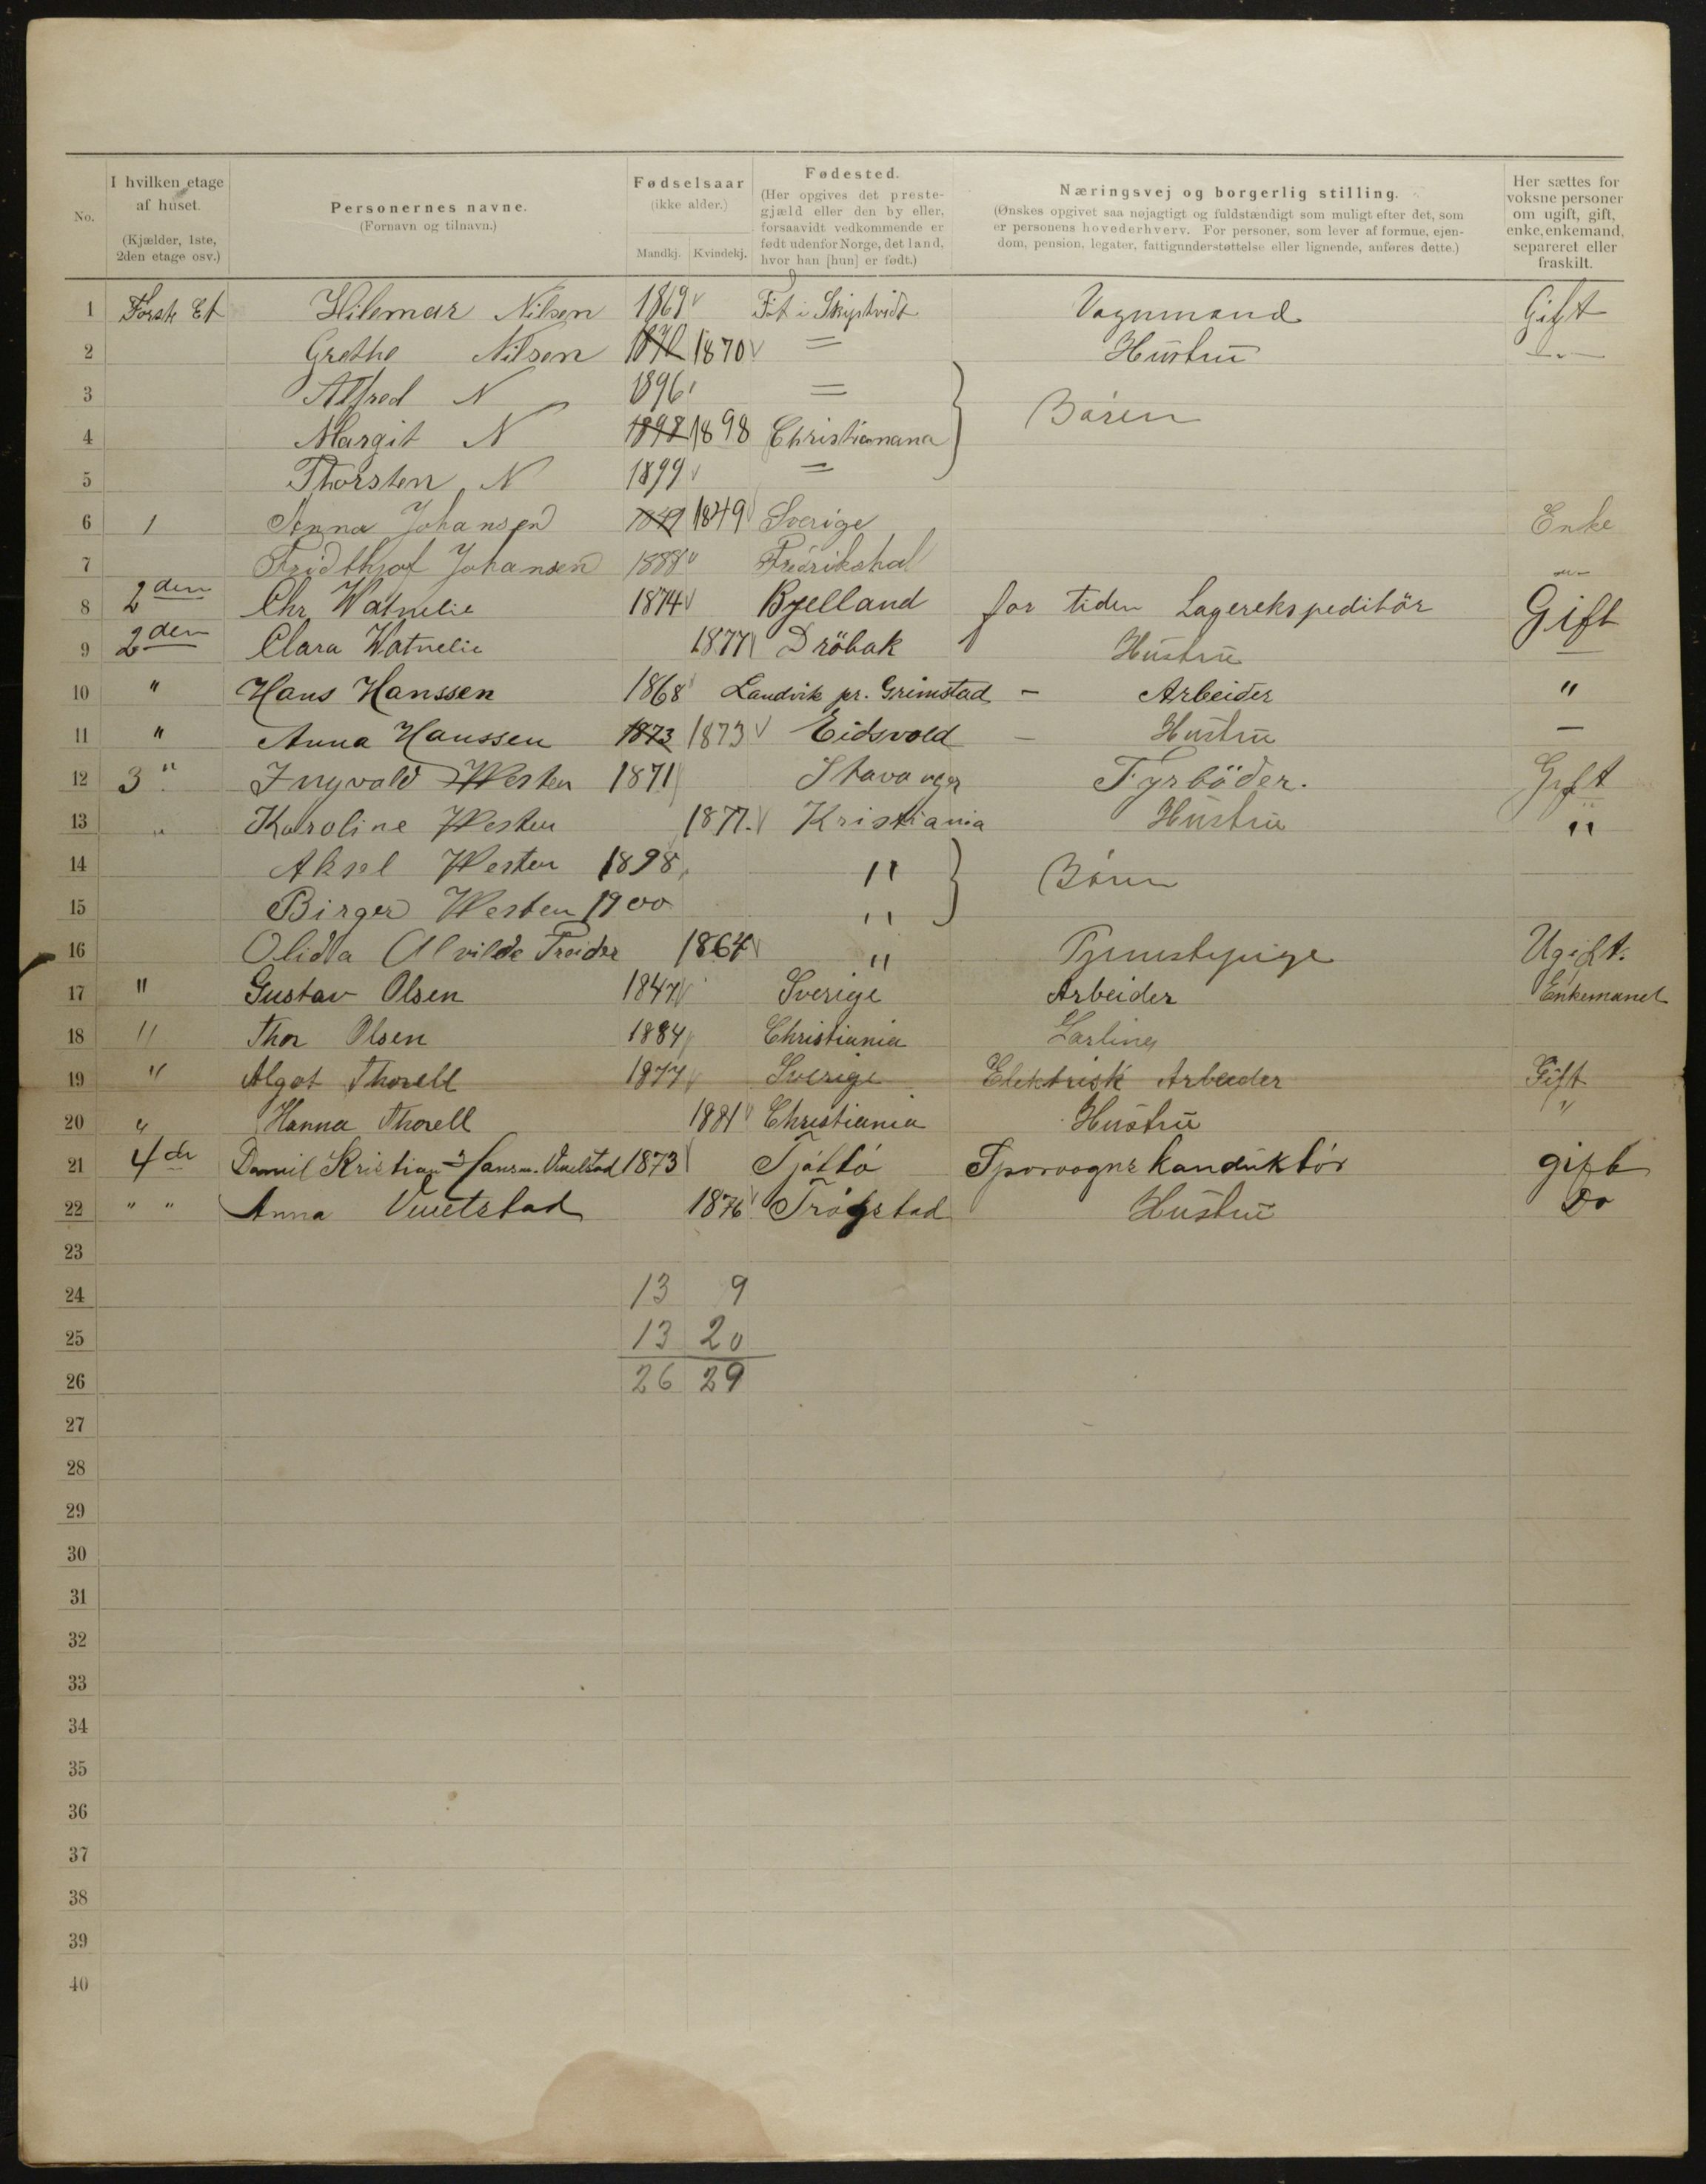 No.
I hvilken etage af huset. (Kjælder, 1ste, 2den etage osv.)
Personernes navne. (Fornavn og tilnavn.)
Fødselsaar (ikke alder.) Mandkj. Kvindekj.
Fødested. (Her opgives det prestegjæld eller den by eller, forsaavidt vedkommende er født udenfor Norge, det land, hvor han [hun] er født.)
Næringsvej og borgerlig stilling. (Ønskes opgivet saa nøjagtigt og fuldstændigt som muligt efter det, som er personens hovederhverv. For personer, som lever af formue, ejendom, pension, legater, fattigunderstøttelse eller lignende, anføres dette.)
Her sættes for voksne personer om ugift, gift, enke, enkemand, separeret eller fraskilt.
1 Forste Et Hilemar Nilsen 1869 Föt i Skiptvidt Vognmand Gift
2 Grethe Nilsen 1870 1870 = Hustru -"-
3 Alfred N 1896 =
4 Margit N 1898 1898 Christianana } Bören
5 Thorsten N 1899 =
6 1 Anna Johansen 1849 1849 Sverige Enke
7 Fridthjof Johansen 1888 Fredrikshal
8 2den Chr Watnelie 1874 Bjelland for tiden Lagerekspeditör Gift
9 2den Clara Watnelie 1877 Dröbak Hustru
10 " Hans Hanssen 1868 Landvik pr. Grimstad - Arbeider "
11 " Anna Hanssen 1873 1873 Eidsvold - Hustru -
12 3" Ingvald Westen 1871 Stavanger Fyrböder. Gift
13 " Karoline Westen 1877. Kristiania Hustru "
14 Aksel Westen 1898 " } Börn
15 Birger Westen 1900 "
16 Olida Alvilde 1864 " Tjenestepige Ugift.
17 " Gustav Olsen 1847 Sverige Arbeider Enkemand
18 " Thor Olsen 1884 Christiania Lærling
19 " Algot Thorell 1877 Sverige Elektrisk Arbeider Gift
20 " Hanna Thorell 1881 Christiania Hustru "
21 4de Daniel Kristian 1873 Tjöttö Sporvognskonduktör gift
22 " " Anna 1876 Trögstad Hustru Do
23
24 13 9
25 13 20
26 26 29
27
28
29
30
31
32
33
34
35
36
37
38
39
40